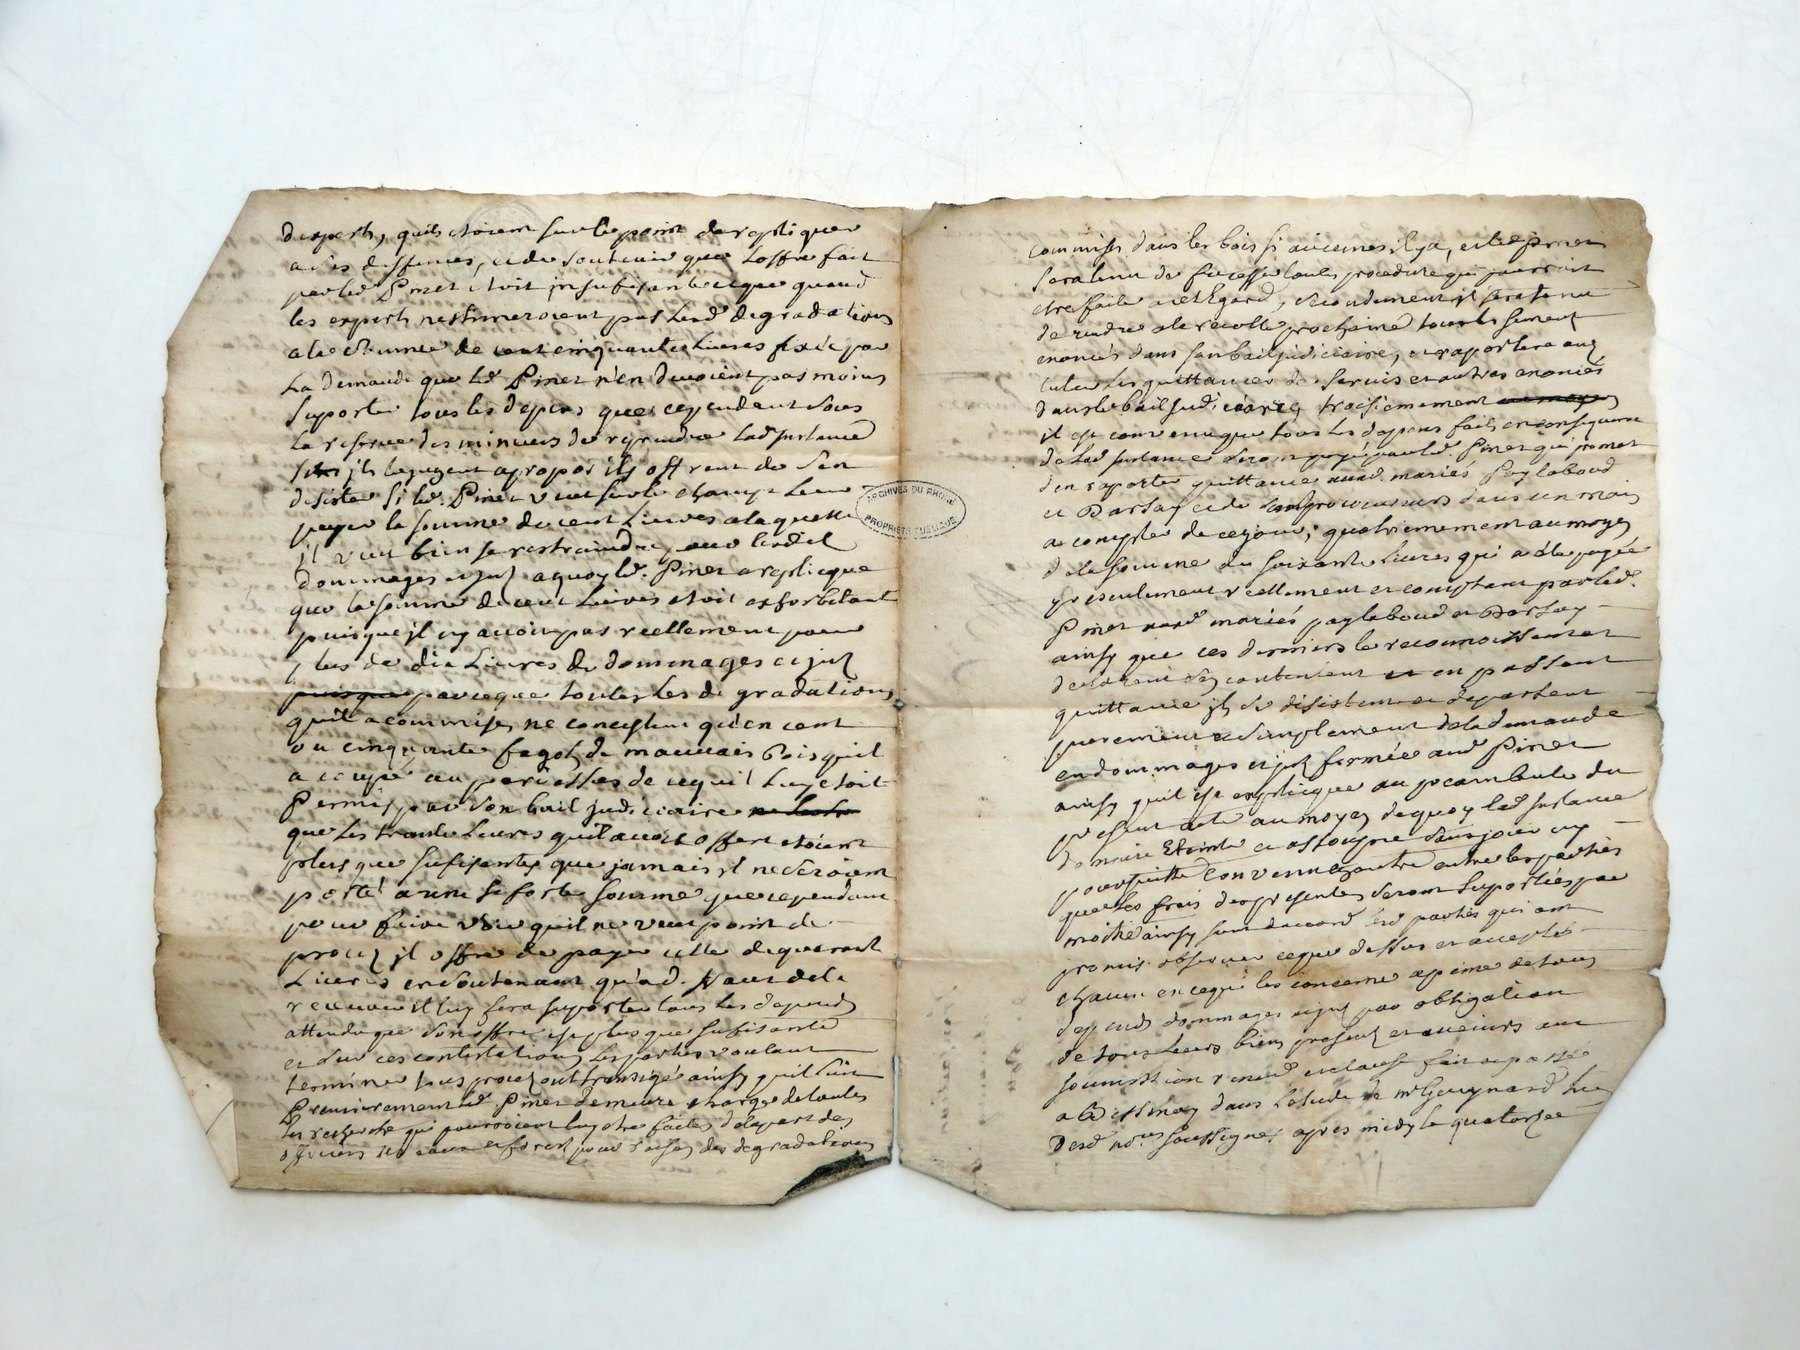 dexperts, quils etoient sur le point de repliquer
a ces deffences, et de soutenir que Loffre fait
par led Pinet etoit insufisante et que quand
les experts nestimeroient pas Lesd degradations
a la somme de cent cinquante Livres fixée par
La demande que led Pinet n'en devoient pas moins
suporter tous les depens que cependant sous
La reserve des minuers de reprendre lad instance
sils le jugent apropos ils offrent de s'en
desister si led. Pinet veut sur le champ Leur
payer la somme de cent Livres a laquelle
il veut bien se restraindre pour lesdits
dommages et jnts aquoy led. Pinet a replicque
que la somme de cent Livres etoit exsorbitante
puisque il ny avoit pas reellement pour
plus de dix Livres de dommages et jnts
puisque parceque toutes Les degradations
quil a commises ne concistent qu'en cent
ou cinquante fagots de mauvais bois quil
a coupé au par dessus de ce quil Luy etoit
Permis par son bail judiciaire
que Les trente Livres quil avoit offert etoient
plus que sufisantes que jamais il ne seroient
porté a une si forte somme que cependant
pour faire voir quil ne veut point de
procez il offre de payer celle de quarante
Livres en soutenant qu'a d. faut de la
recevoir il luy fera suporter tous les depends
attendu que son offre est plus que sufisante
et sur ces contestations Les parties voulant
terminer tous procez ont transigé ainsy quil suit
Premierement led. Pinet demeure charge de toutes
Les recherche qui pourroient luy etre faites de la part des
officiers des eaux et forest pour raison des degradations
commises dans les bois si aucunes il y a, et led pinet
sera tenu de faire cesser toutes procedure qui pourroit
etre faite a cet Egard, secondement il sera tenu
de rendre a la recolte prochaine tous les sement
enoncés dans son bail judiciaire, et raportera auxd
les quittances des servis et autres enoncés
dans le bail judiciaire, troisiemement
il est convenu que tous les depens faits en consequence
de lad instance seront payé par led. Pinet qui promet
d'en raporter quittance auxd. mariés Paylaboud
et Darsay et de procureurs dans un mois
a compter de ce jour; quatriemement au moyen
de la somme de soixante Livres qui a été payée
presentement reellement et comptant par led.
Pinet auxd mariés paylaboud et Darsay
ainsy que ces derniers le reconnoissent
et en passent
quittance ils se desistent et departent
purement et simplement de la demande
en dommages et jnts formée aud Pinet
ainsy quil est expliquee au preambule du
present acte au moyen dequoy lad instance
demeure Eteinte et assoupie sans joier ny
poursuitte Convenu en outre entre les parties
que les frais des presentes seront suportées par
moitié ainsy sont daccord lesd parties qui ont
promis observer ce que dessus et accepté
chacun en ce qui les concerne a peine de tous
depends dommages et jnts par obligation
de tous Leurs biens presents et avenirs aux
soumission renond et clause fait et passé
a dans Letude de mr Gouynard Lu
Desd nores soussignes apres midy le quatorze
ARCHIVES DU RHONE
PROPRIETE PUBLIQUE